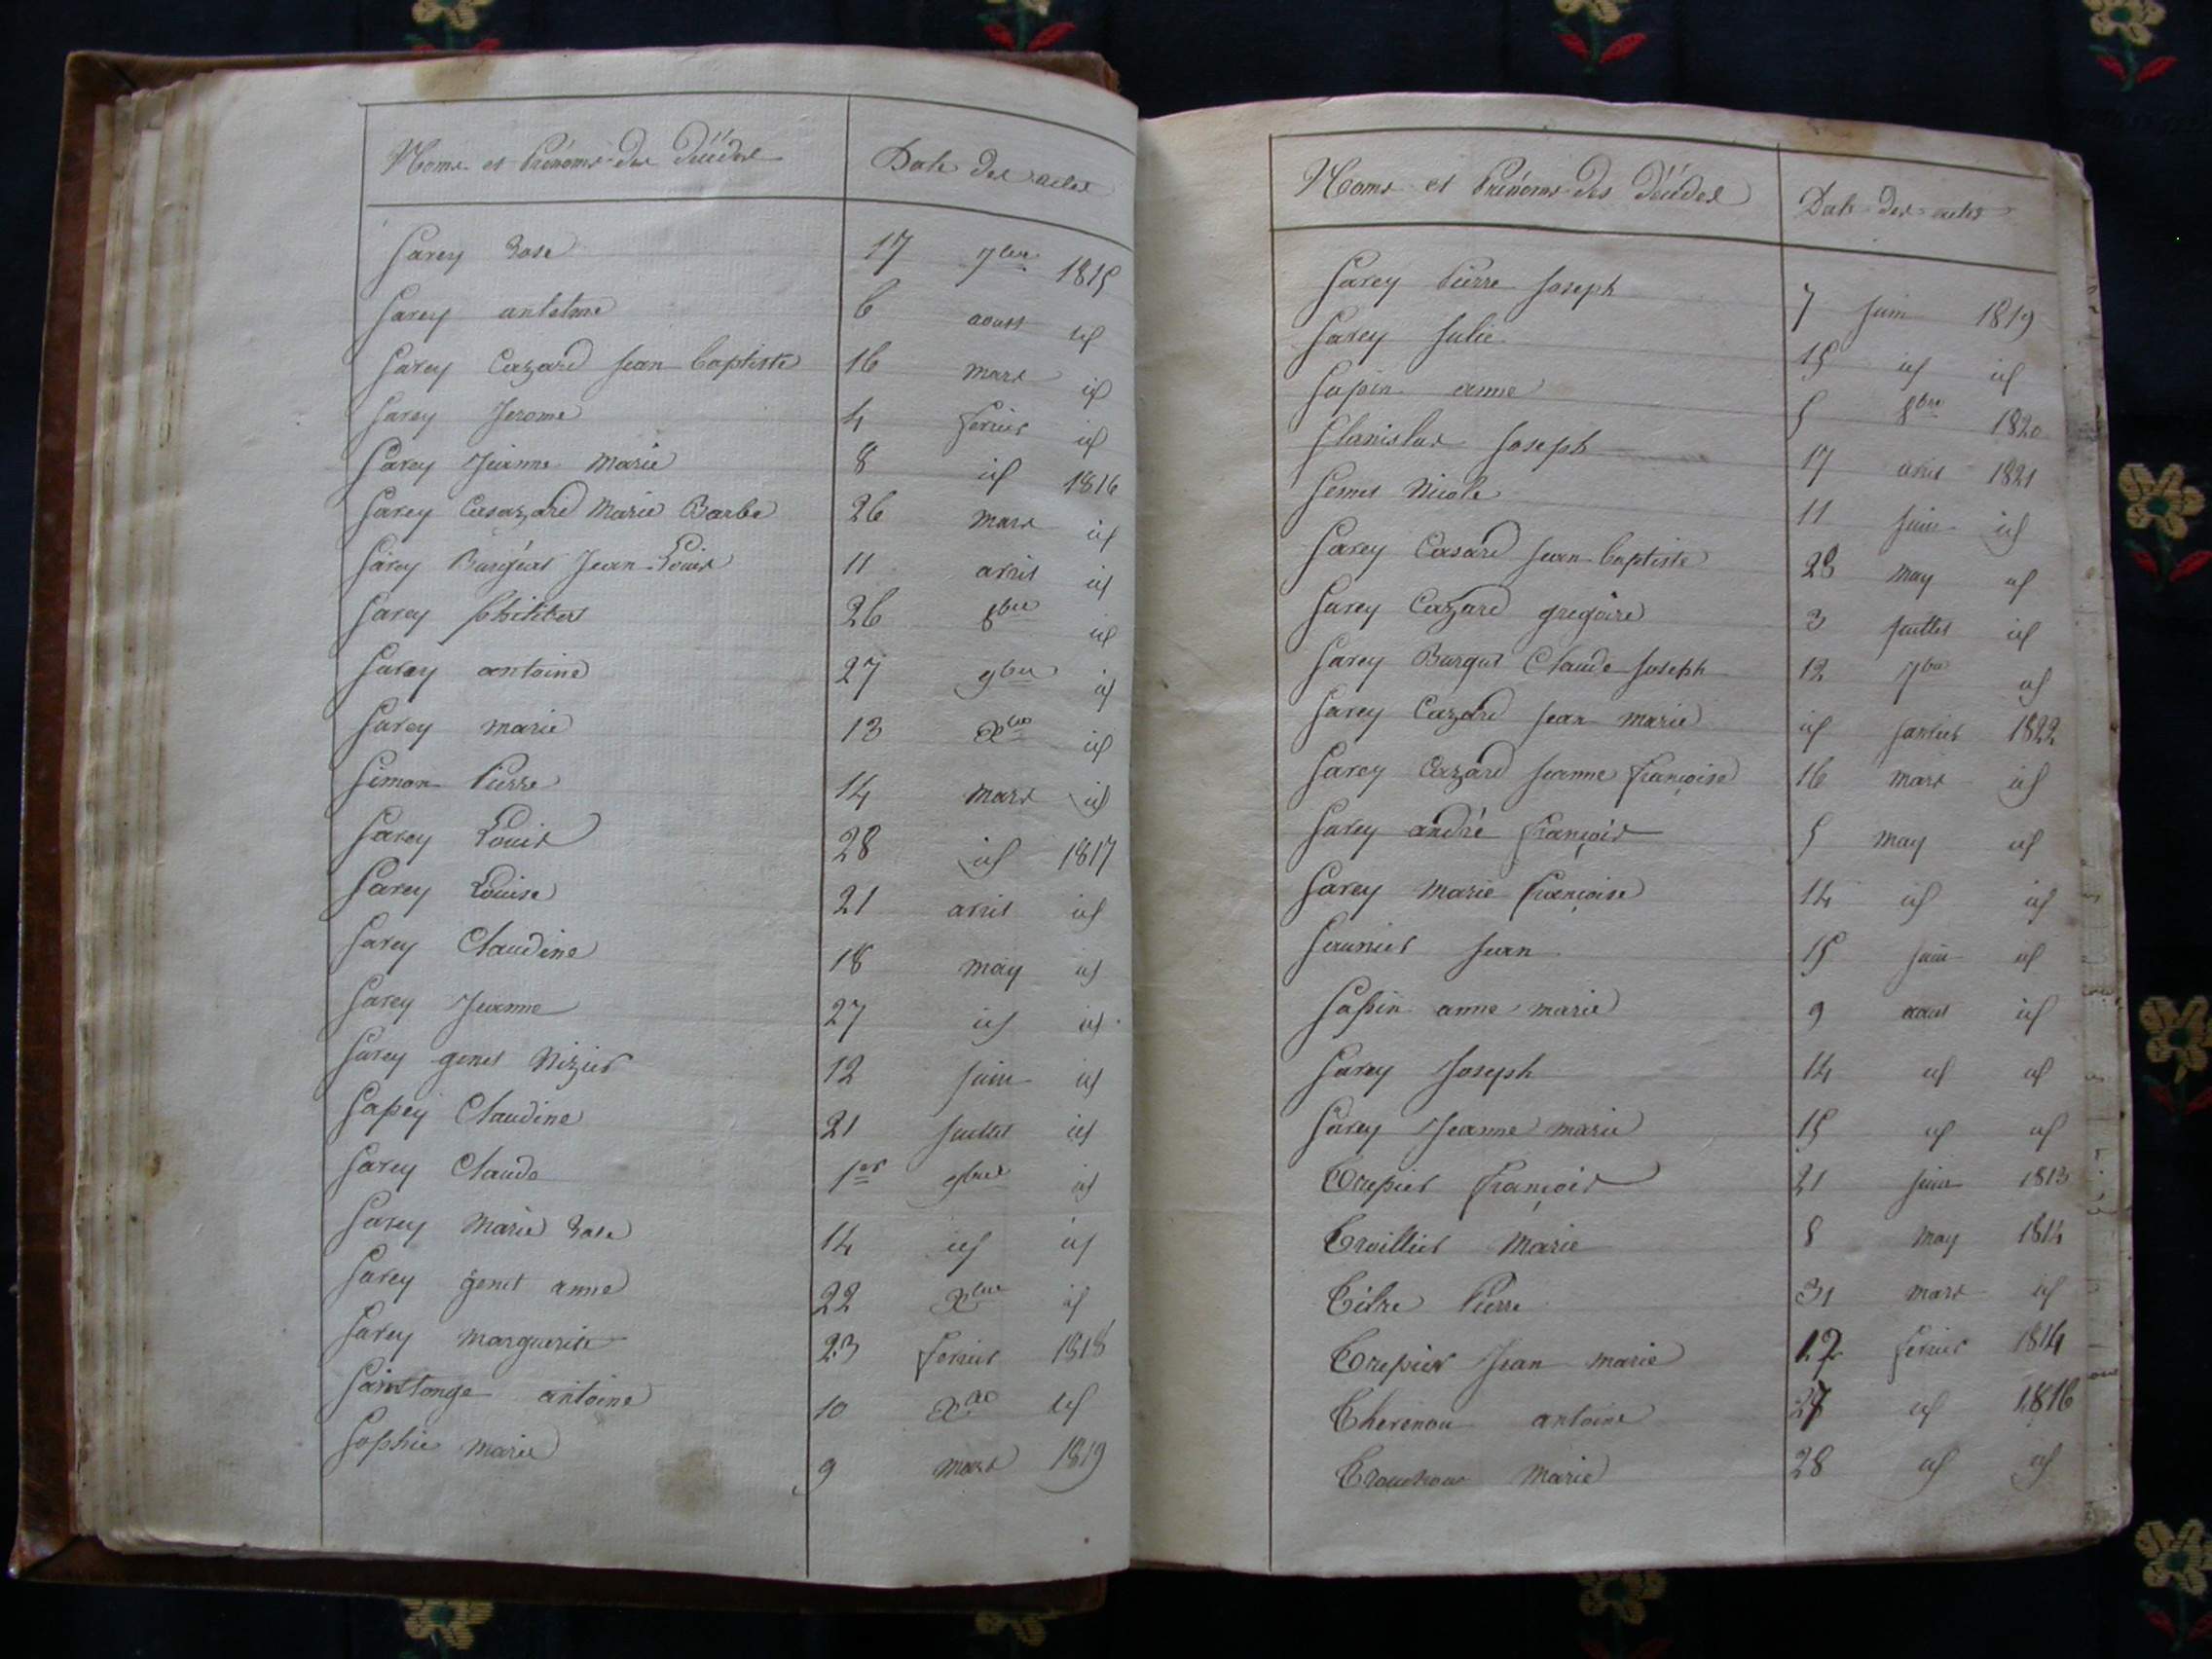 Noms et Prénoms des Décédés Date des actes
Sarey Rose 17 7bre 1815
Sarey antelme 6 aoust id
Sarey Cazard Jean baptiste 16 mars id
Sarey Jerome 4 fevrier id
Sarey Jeanne Marie 8 id 1816
Sarey Casazard Marie Barbe 26 mars id
Sarey Burgeat Jean Louis 11 avril id
Sarey philibert 26 8bre id
Sarey antoine 27 9bre id
Sarey marie 13 Xbre id
Simon Pierre 14 mars id
Sarey Louis 28 id 1817
Sarey Louise 21 avril id
Sarey Claudine 18 may id
Sarey Jeanne 27 id id
Sarey genet Nizier 12 juin id
Sapey Claudine 21 juillet id
Sarey Claude 1er 9bre id
Sarey Marie Rose 14 id id
Sarey genet anne 22 Xbre id
Sarey marguerite 23 fevrier 1818
Saintonge antoine 10 Xbre id
Sophie marie 9 mars 1819
Noms et Prénoms des Décédés Date des actes
Sarey Pierre Joseph 7 juin 1819
Sarey Julie 15 id id
Sapin anne 5 8bre 1820
Stanislas Joseph 17 avril 1821
Nicole 11 juin id
Sarey Casard Jean baptiste 28 may id
Sarey Cazard gregoire 3 juillet id
Sarey Burgat Claude Joseph 12 7bre id
Sarey Cazard Jean marie id janvier 1822
Sarey Cazard Jeanne françoise 16 mars id
Sarey andré françois 5 may id
Sarey marie françoise 14 id id
Saunier Jean 15 juin id
Sapin anne marie 9 aout id
Sarey Joseph 14 id id
Sarey Jeanne marie 15 id id
Trepier françois 21 juin 1813
Troillier Marie 8 may 1814
Titre Pierre 31 mars id
Trepier Jean marie 12 fevrier 1814
Thevenon antoine 27 id 1816
Marie 28 id id